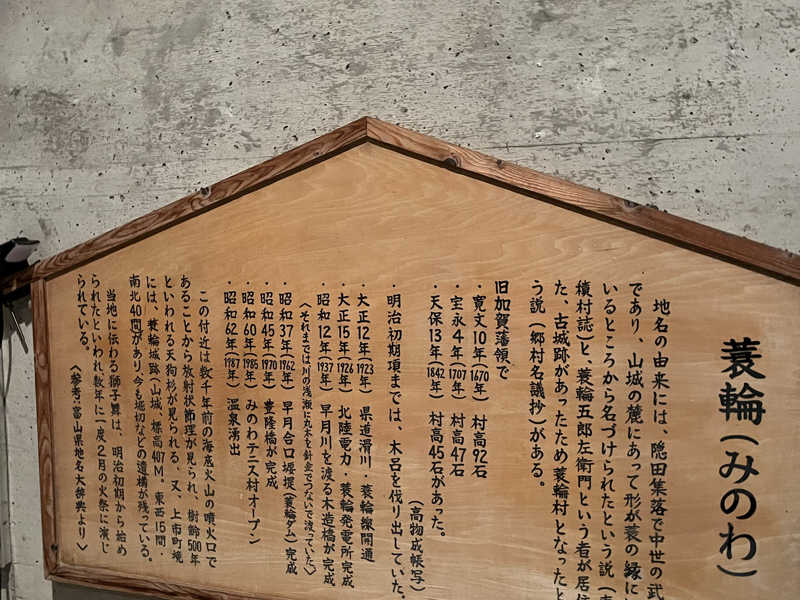 蓑輪(みのわ)
地名の由来には、隠田集落で中世の武
であり、山城の麓にあって形が蓑の縁に
いるところから名づけられたという説
積村誌)と、蓑輪五郎左衛門という者が居住
た、古城跡があったため蓑輪村となったと
う説(郷村名議抄)がある。
旧加賀藩領で
・寛文10年(1670年) 村高92石
・宝永4年(1707年) 村高47石
・天保13年(1842年) 村高45石があった。
(高物成帳写)
・明治初期項までは、木呂を伐り出していた。
・大正12年(1923年) 県道滑川・蓑輪線開通
・大正15年(1926年) 北陸電力・蓑輪発電所完成
・昭和12年(1937年) 早月川を渡る木造橋が完成
〈それまでは川の浅瀬に丸木を針金でつないで渡っていた〉
・昭和37年(1962年) 早月合口堰堤(蓑輪ダム)完成
・昭和45年(1970年) 豊隆橋が完成
・昭和60年(1985年) みのわテニス村オープン
・昭和62年(1987年) 温泉湧出
この付近は数千年前の海底火山の噴火口で
あることから放射状節理が見られ、樹齢500年
といわれる天狗杉が見られる。又、上市町境
には、蓑輪城跡(山城、標高407M。東西15間・
南北40間があり、今も堀切などの遺構が残っている。
当地に伝わる獅子舞は、明治初期から始め
られたといわれ、数年に一度2月の火祭に演じ
られている。
〈参考:富山県地名大辞典より〉